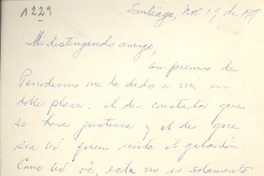 1229
Santiago, Nov. 19 de 19
Mi distinguido amigo,
Su premio de
Periodismo me ha dado a mí un
doble placer: el de constatar que
se hace justicia y el de que
sea Ud. quien reciba el galardón.
Como Ud. ve, esta no es solamente